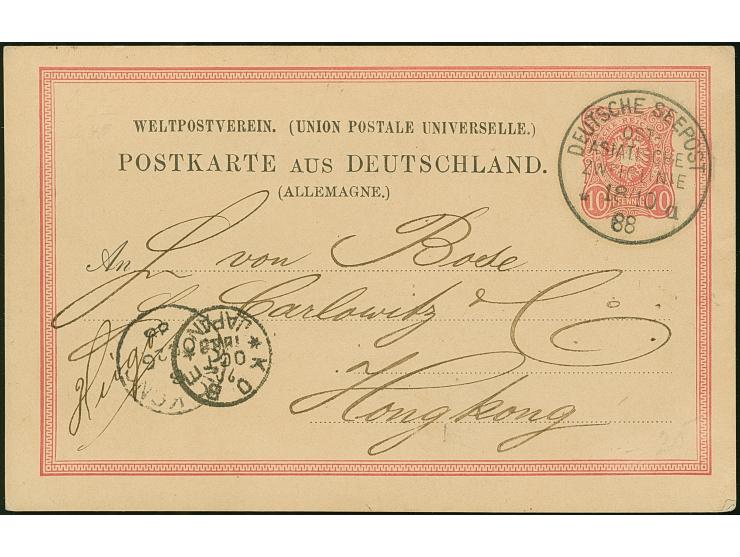 WELTPOSTVEREIN. (UNION POSTALE UNIVERSELLE.)
POSTKARTE AUS DEUTSCHLAND.
(ALLEMAGNE.)
DEUTSCHE SEEPOST
OST-
ASIATISCHE
ZWEIGLINIE
18 10 a
88
10 PFENNIG 10
An H von Bose
Carlowitz & Co
Hongkong
KOBE
JAPAN
OCT